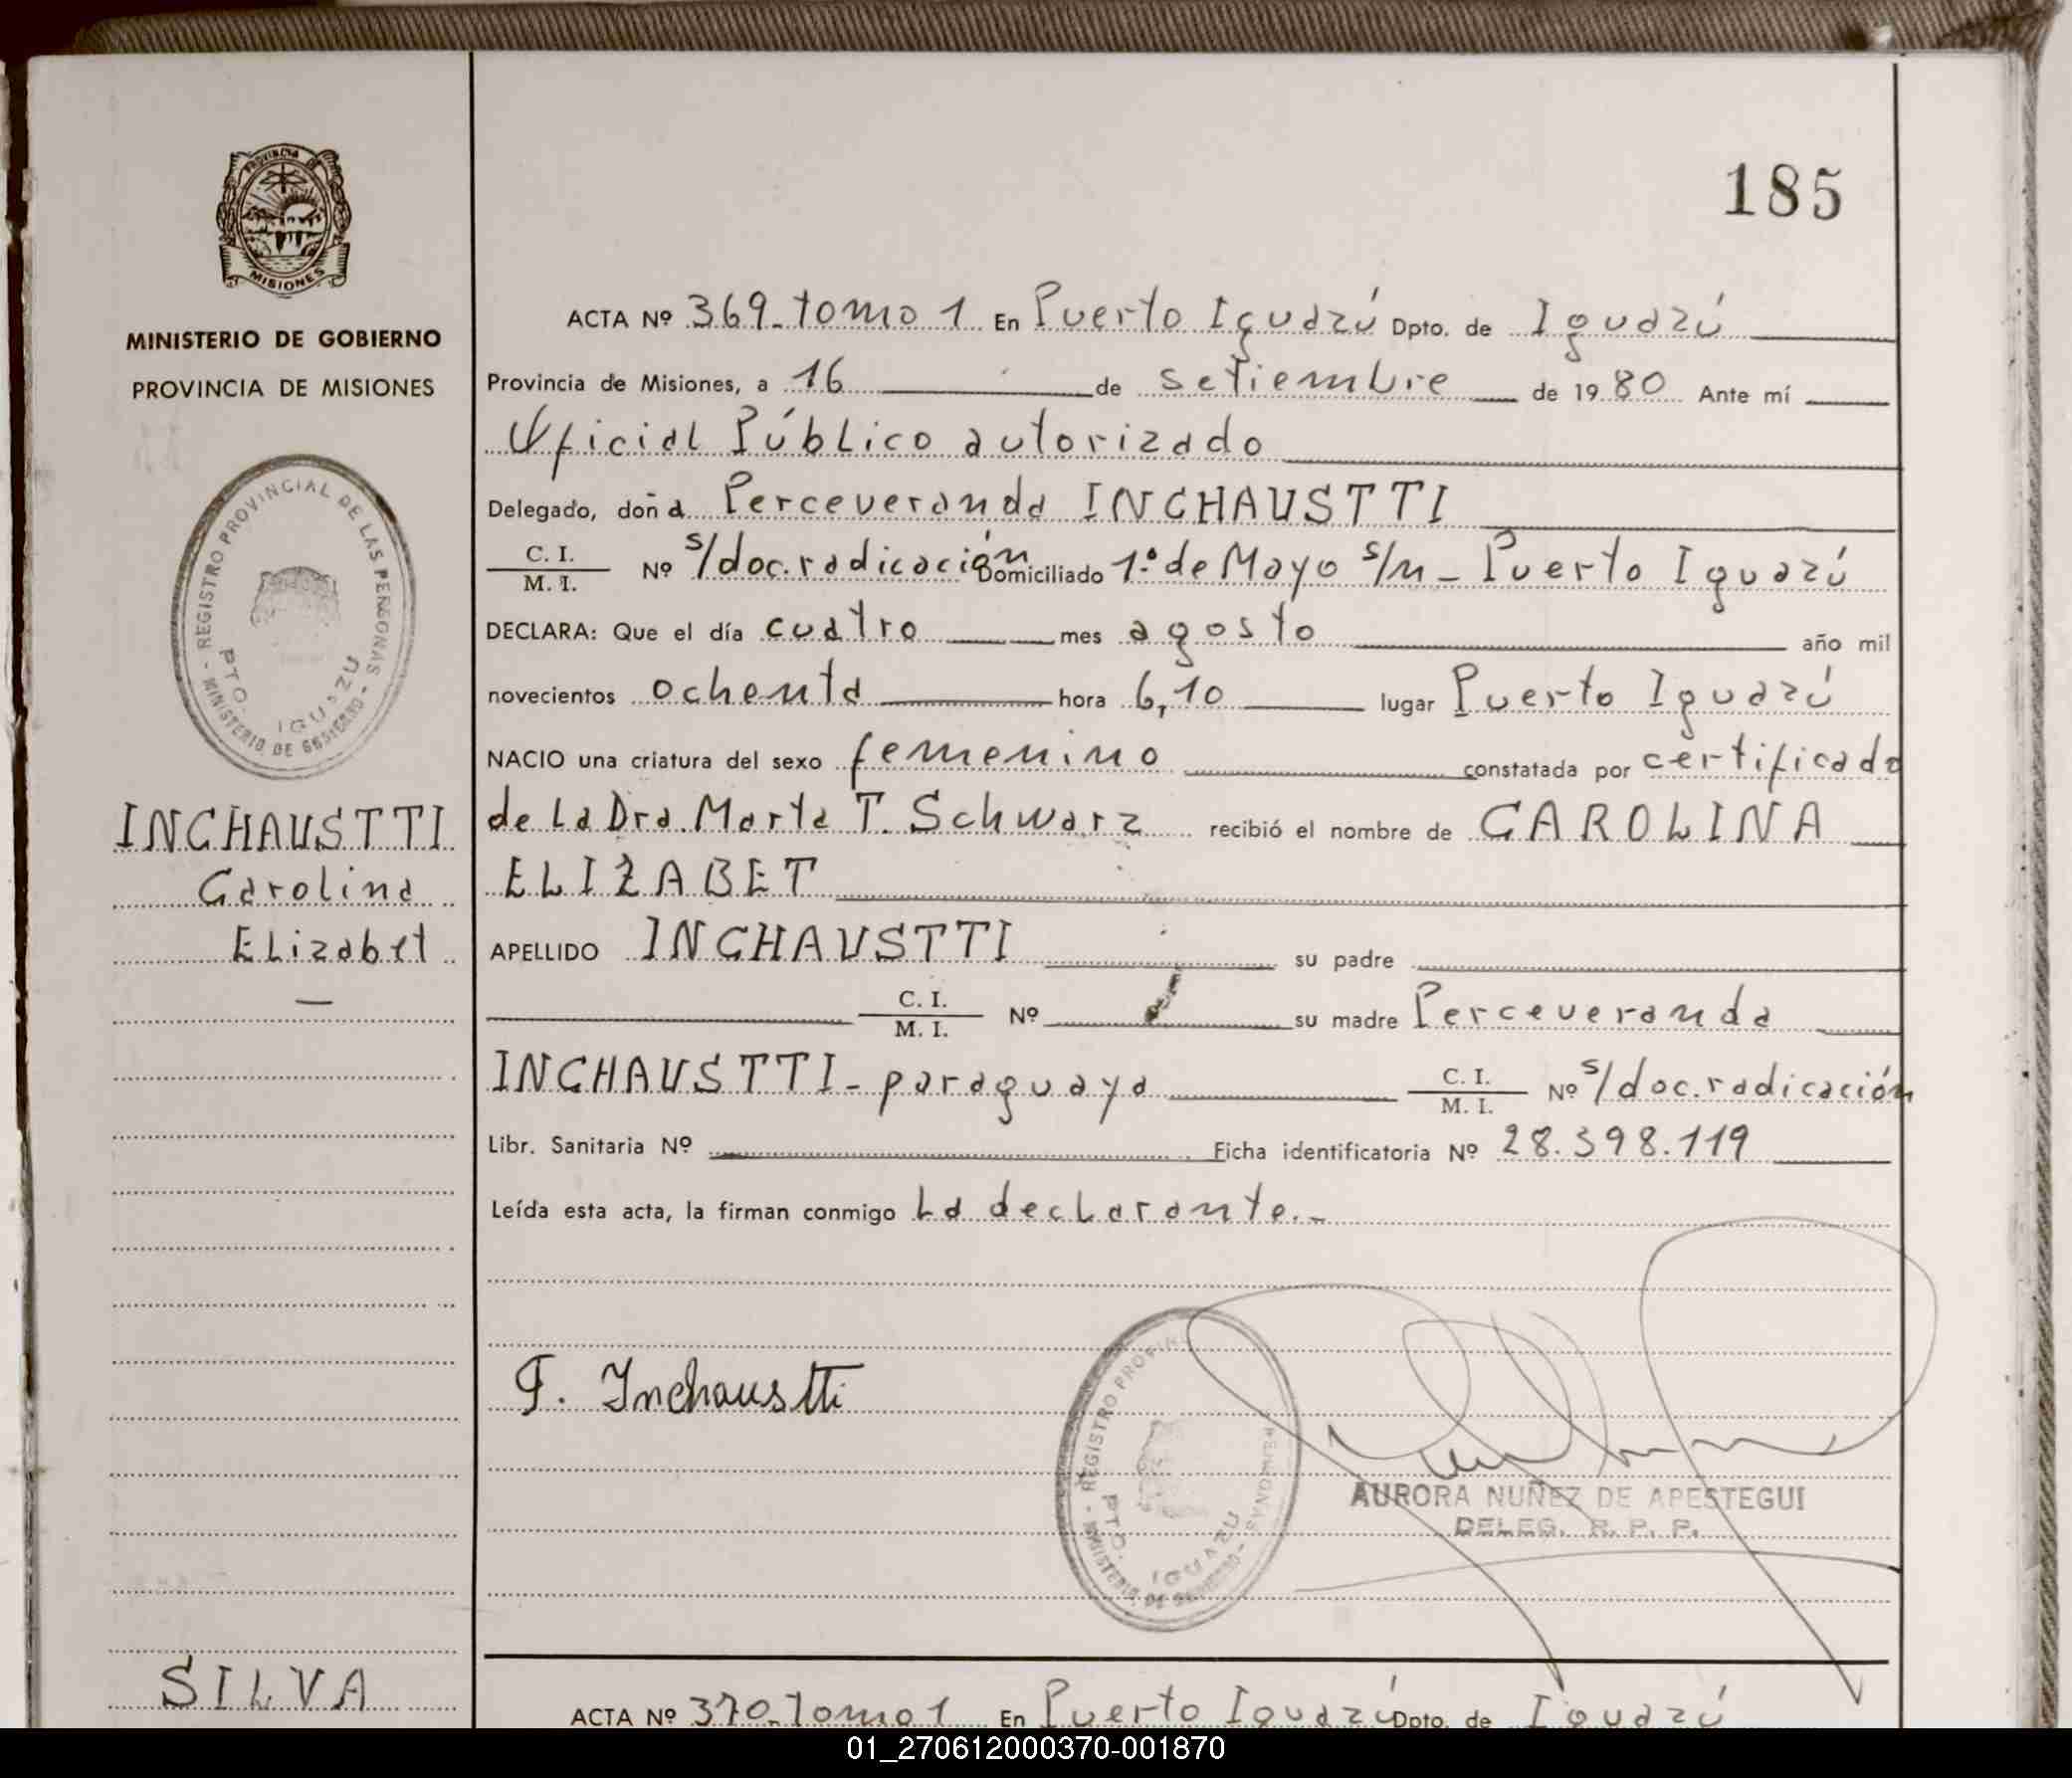 185
PROVINCIA DE
MISIONES
MINISTERIO DE GOBIERNO
PROVINCIA DE MISIONES
MINISTERIO DE GOBIERNO - REGISTRO PROVINCIAL DE LAS PERSONAS -
PTO. IGUAZU
INCHAUSTTI
Carolina
Elizabet
—
SILVA
ACTA Nº 369_tomo 1 En Puerto Iguazú Dpto. de Iguazú
Provincia de Misiones, a 16 de setiembre de 1980 Ante mí
Oficial Público autorizado
Delegado, doña Perceveranda INCHAUSTTI
C. I.
M. I. Nº s/doc. radicación Domiciliado 1º de Mayo s/n - Puerto Iguazú
DECLARA: Que el día cuatro mes agosto año mil
novecientos ochenta hora 6,10 lugar Puerto Iguazú
NACIO una criatura del sexo femenino constatada por certificado
de La Dra. Marta T. Schwarz recibió el nombre de CAROLINA
ELIZABET
APELLIDO INCHAUSTTI su padre
C. I.
M. I. Nº su madre Perceveranda
INCHAUSTTI - paraguaya C. I.
M. I. Nº s/doc. radicación
Libr. Sanitaria Nº Ficha identificatoria Nº 28.398.119
Leída esta acta, la firman conmigo La declarante.-
P. Inchaustti
MINISTERIO DE GOBIERNO - REGISTRO PROVIN PERSONAS -
PTO. IGUAZU
AURORA NUÑEZ DE APESTEGUI
DELEG. R. P. P.
ACTA Nº 370_Tomo 1 En Puerto Iguazú Dpto. de Iguazú
01_270612000370-001870